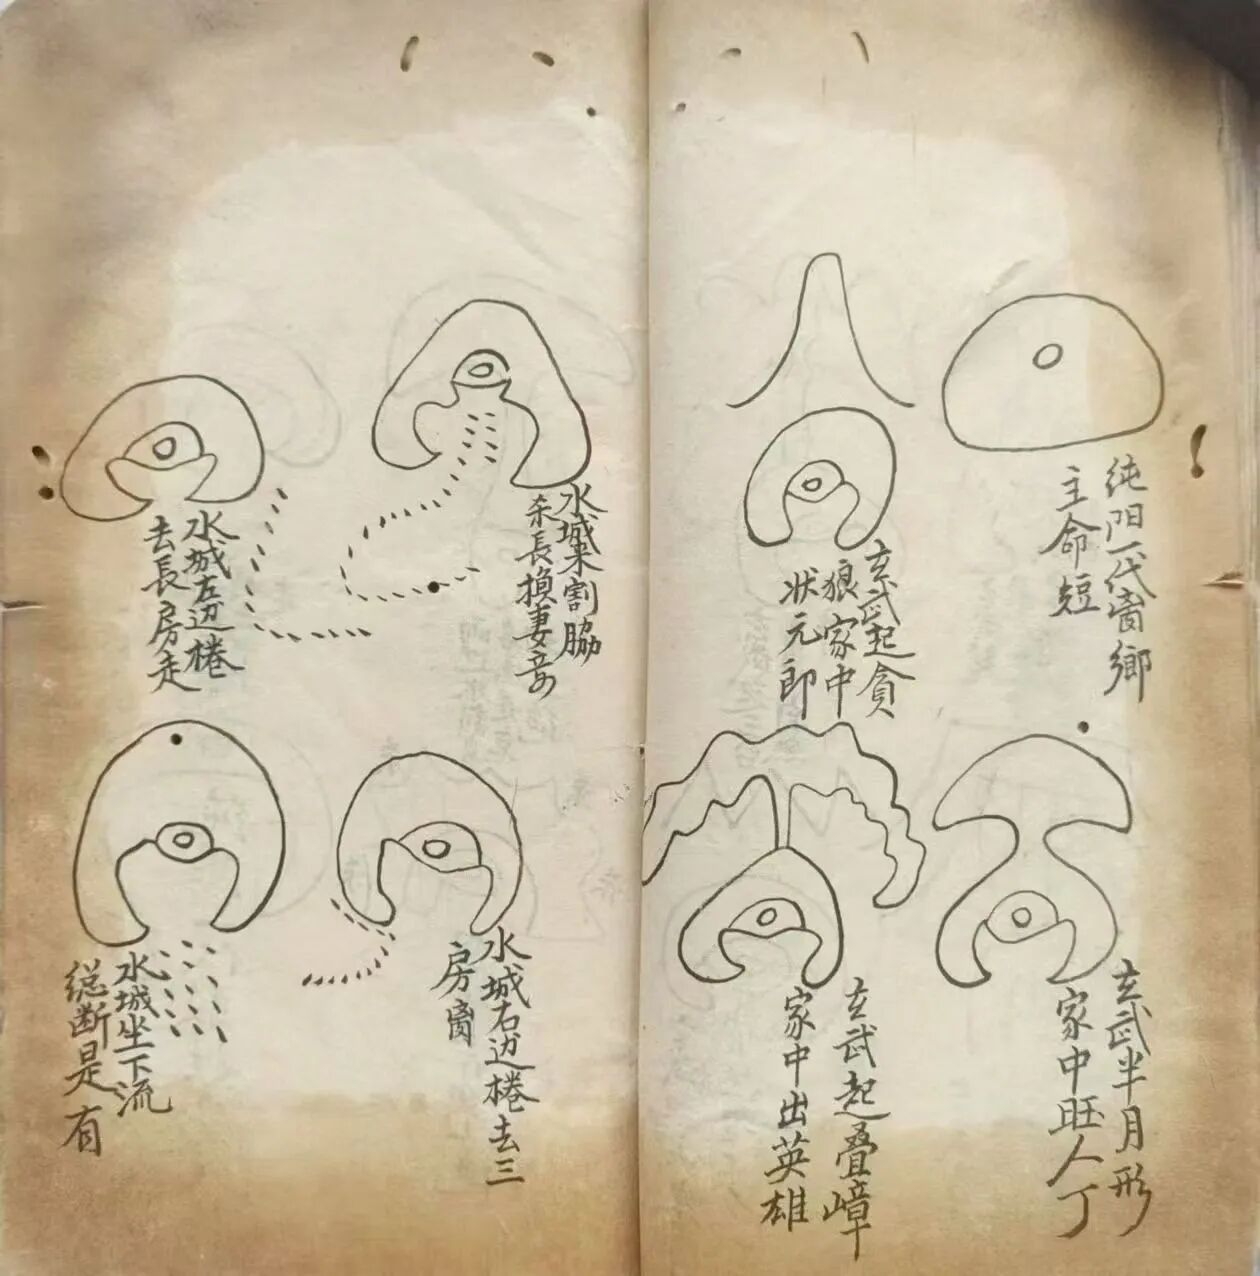 纯阳一代鄉
主命短
玄武起貪
狼家中
状元郎
玄武半月形
家中旺人丁
玄武起叠嶂
家中出英雄
水城来割脇
杀長換妻
水城左边棬
去長房走
水城右边棬去三
房
水城坐下流
総断是有